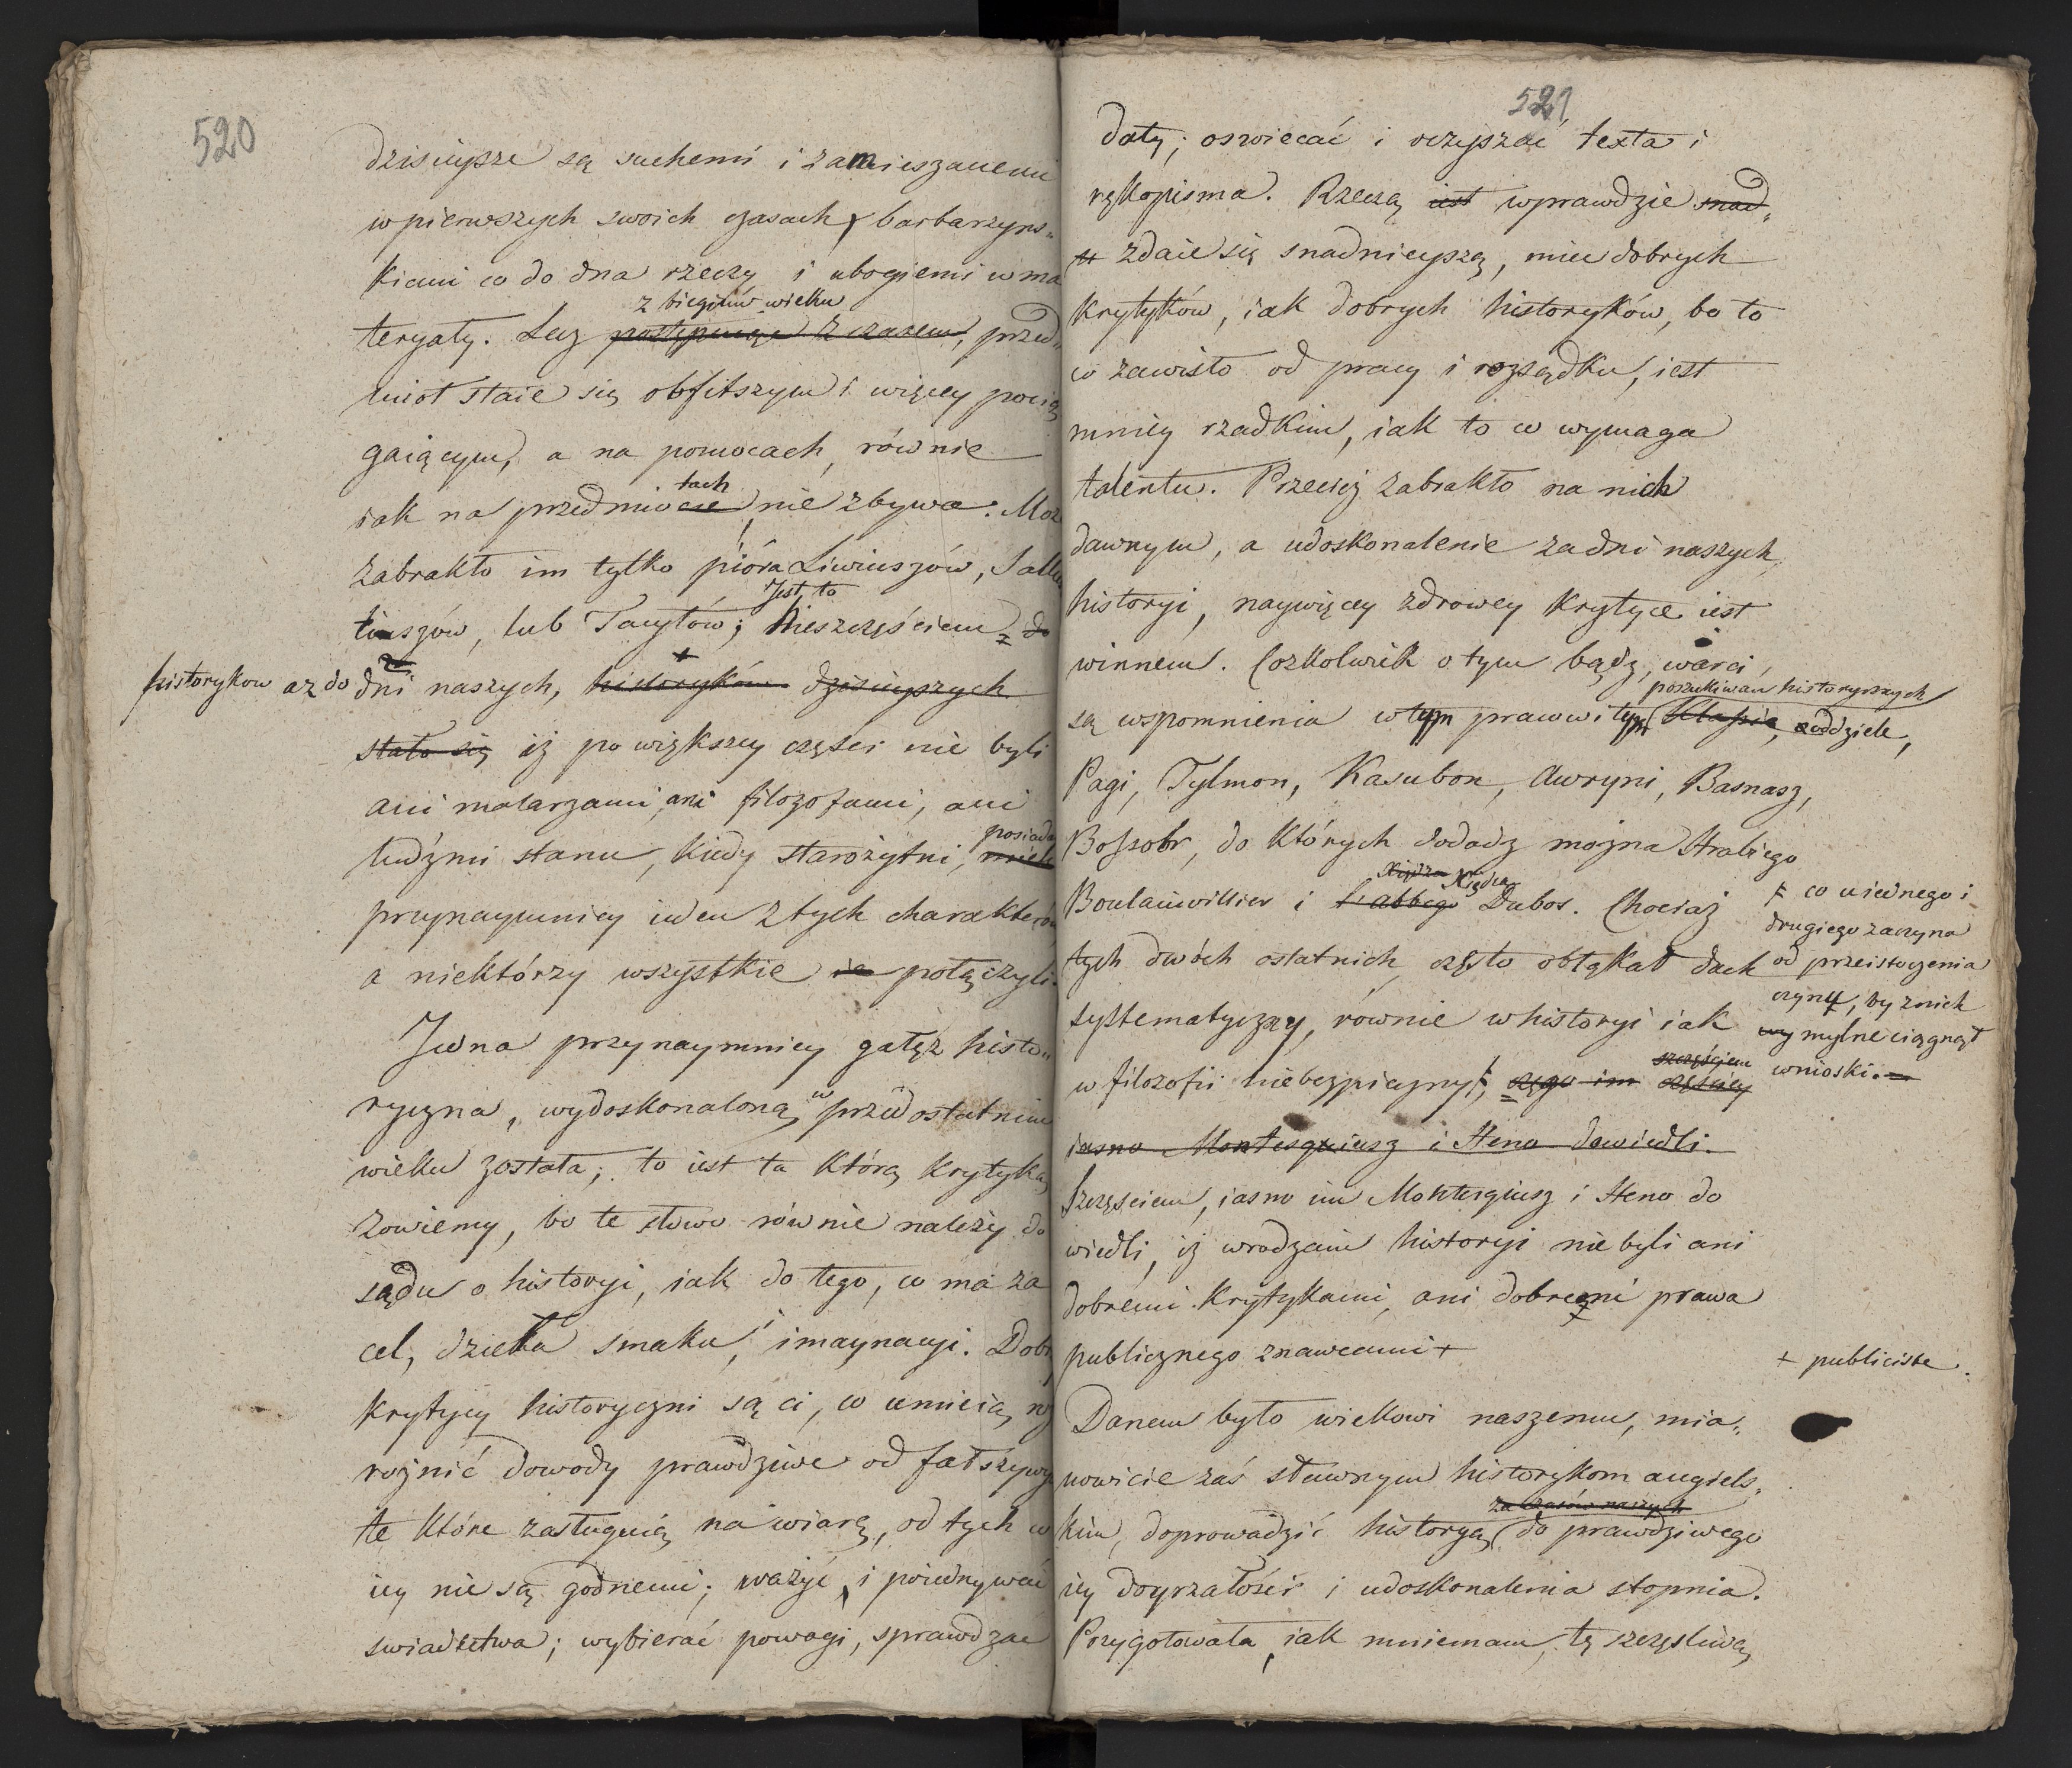 520
dzisieysze są suchemi i zamieszanemi
w pierwszych swoich czasach, barbarzyns„
kiemi co do dna rzeczy i ubogiemi w ma
z biegiem wieku
teryały. Lecz postępuiąc z czasem, przed„
miot staie się obfitszym i więcey pocią
gaiącym, a na pomocach, równie
tach
iak na przedmiocie nie zbywa. Moz
zabrakło im tylko pióra Liwiuszów, Sallu
Jest to
tiuszów, lub Tacytów; Nieszczęściem do
historykow az do dni naszych, historyków dzisieyszych
stało się iż po większey części nie byli
ani malarzami, ani filozofami, ani
posiada
ludźmi stanu, kiedy starożytni, mieli
przynaymniey ieden z tych charakterów
a niektórzy wszystkie ie połączyli.
Jedna przynaymniey gałęź histo„
ryczna, wydoskonaloną w przedostatnim
wieku została; to iest ta którą krytyką
zowiemy, bo te słowo równie należy do
sądu o historyi, iak do tego, co ma za
cel, dzieła smaku, i imaynacyi. Dobr
krytycy historyczni są ci, co umieią roz
rożnić dowody prawdziwe od fałszywy
te które zasługuią na wiarę, od tych co
iey nie są godnemi; ważyć, i poiednywać
swiadectwa; wybierać powagi, sprawdzać
521
daty; oswiecać i oczyszać texta i
rękopisma. Rzeczą iest wprawdzie snad„
zdaie się snadnieyszą, miec dobrych
krytyków, iak dobrych historyków, bo to
co zawisło od pracy i rozsądku, iest
mniey rzadkim, iak to co wymaga
talentu. Przecież zabrakło na nich
dawnym, a udoskonalenie za dni naszych
historyi, naywięcey zdrowey krytyce iest
winnem. Cozkolwiek o tym bądź, warci,
poszukiwan historycznych
są wspomnienia w tym prawowitym Klassie, oddziele,
Pagi, Tylmon, Kasubon, Awryni, Basnasz,
Bossobr, do których dodadz można Hrabiego
Xiędza Xiędza
Boulainwillier i L'abbego Dubos. Chociaż
tych dwóch ostatnich, często obłąkał duch
systematyczny, równie w historyi iak
szczęściem
w filozofii niebezpieczny, czego im częściey
iasno Montesquiusz i Heno dowiedli.
Szczęściem, iasno im Monteskiusz i Heno do
wiedli, iż w rodzaiu historyi nie byli ani
dobremi krytykami, ani dobremi prawa
publicznego znawcami +
+ co iednego i
drugiego zaczyna
od przeistoczenia
czynu, by z nich
wy mylne ciągnął
wnioski.
+ publiciste.
Danem było wiekowi naszemu, mia„
nowicie zaś sławnym historykom angiels„
za czasów naszych
kim, doprowadzić historyą do prawdziwego
iey doyrzałości i udoskonalenia stopnia.
Przygotowała, iak mniemam, tę szczęsliwą